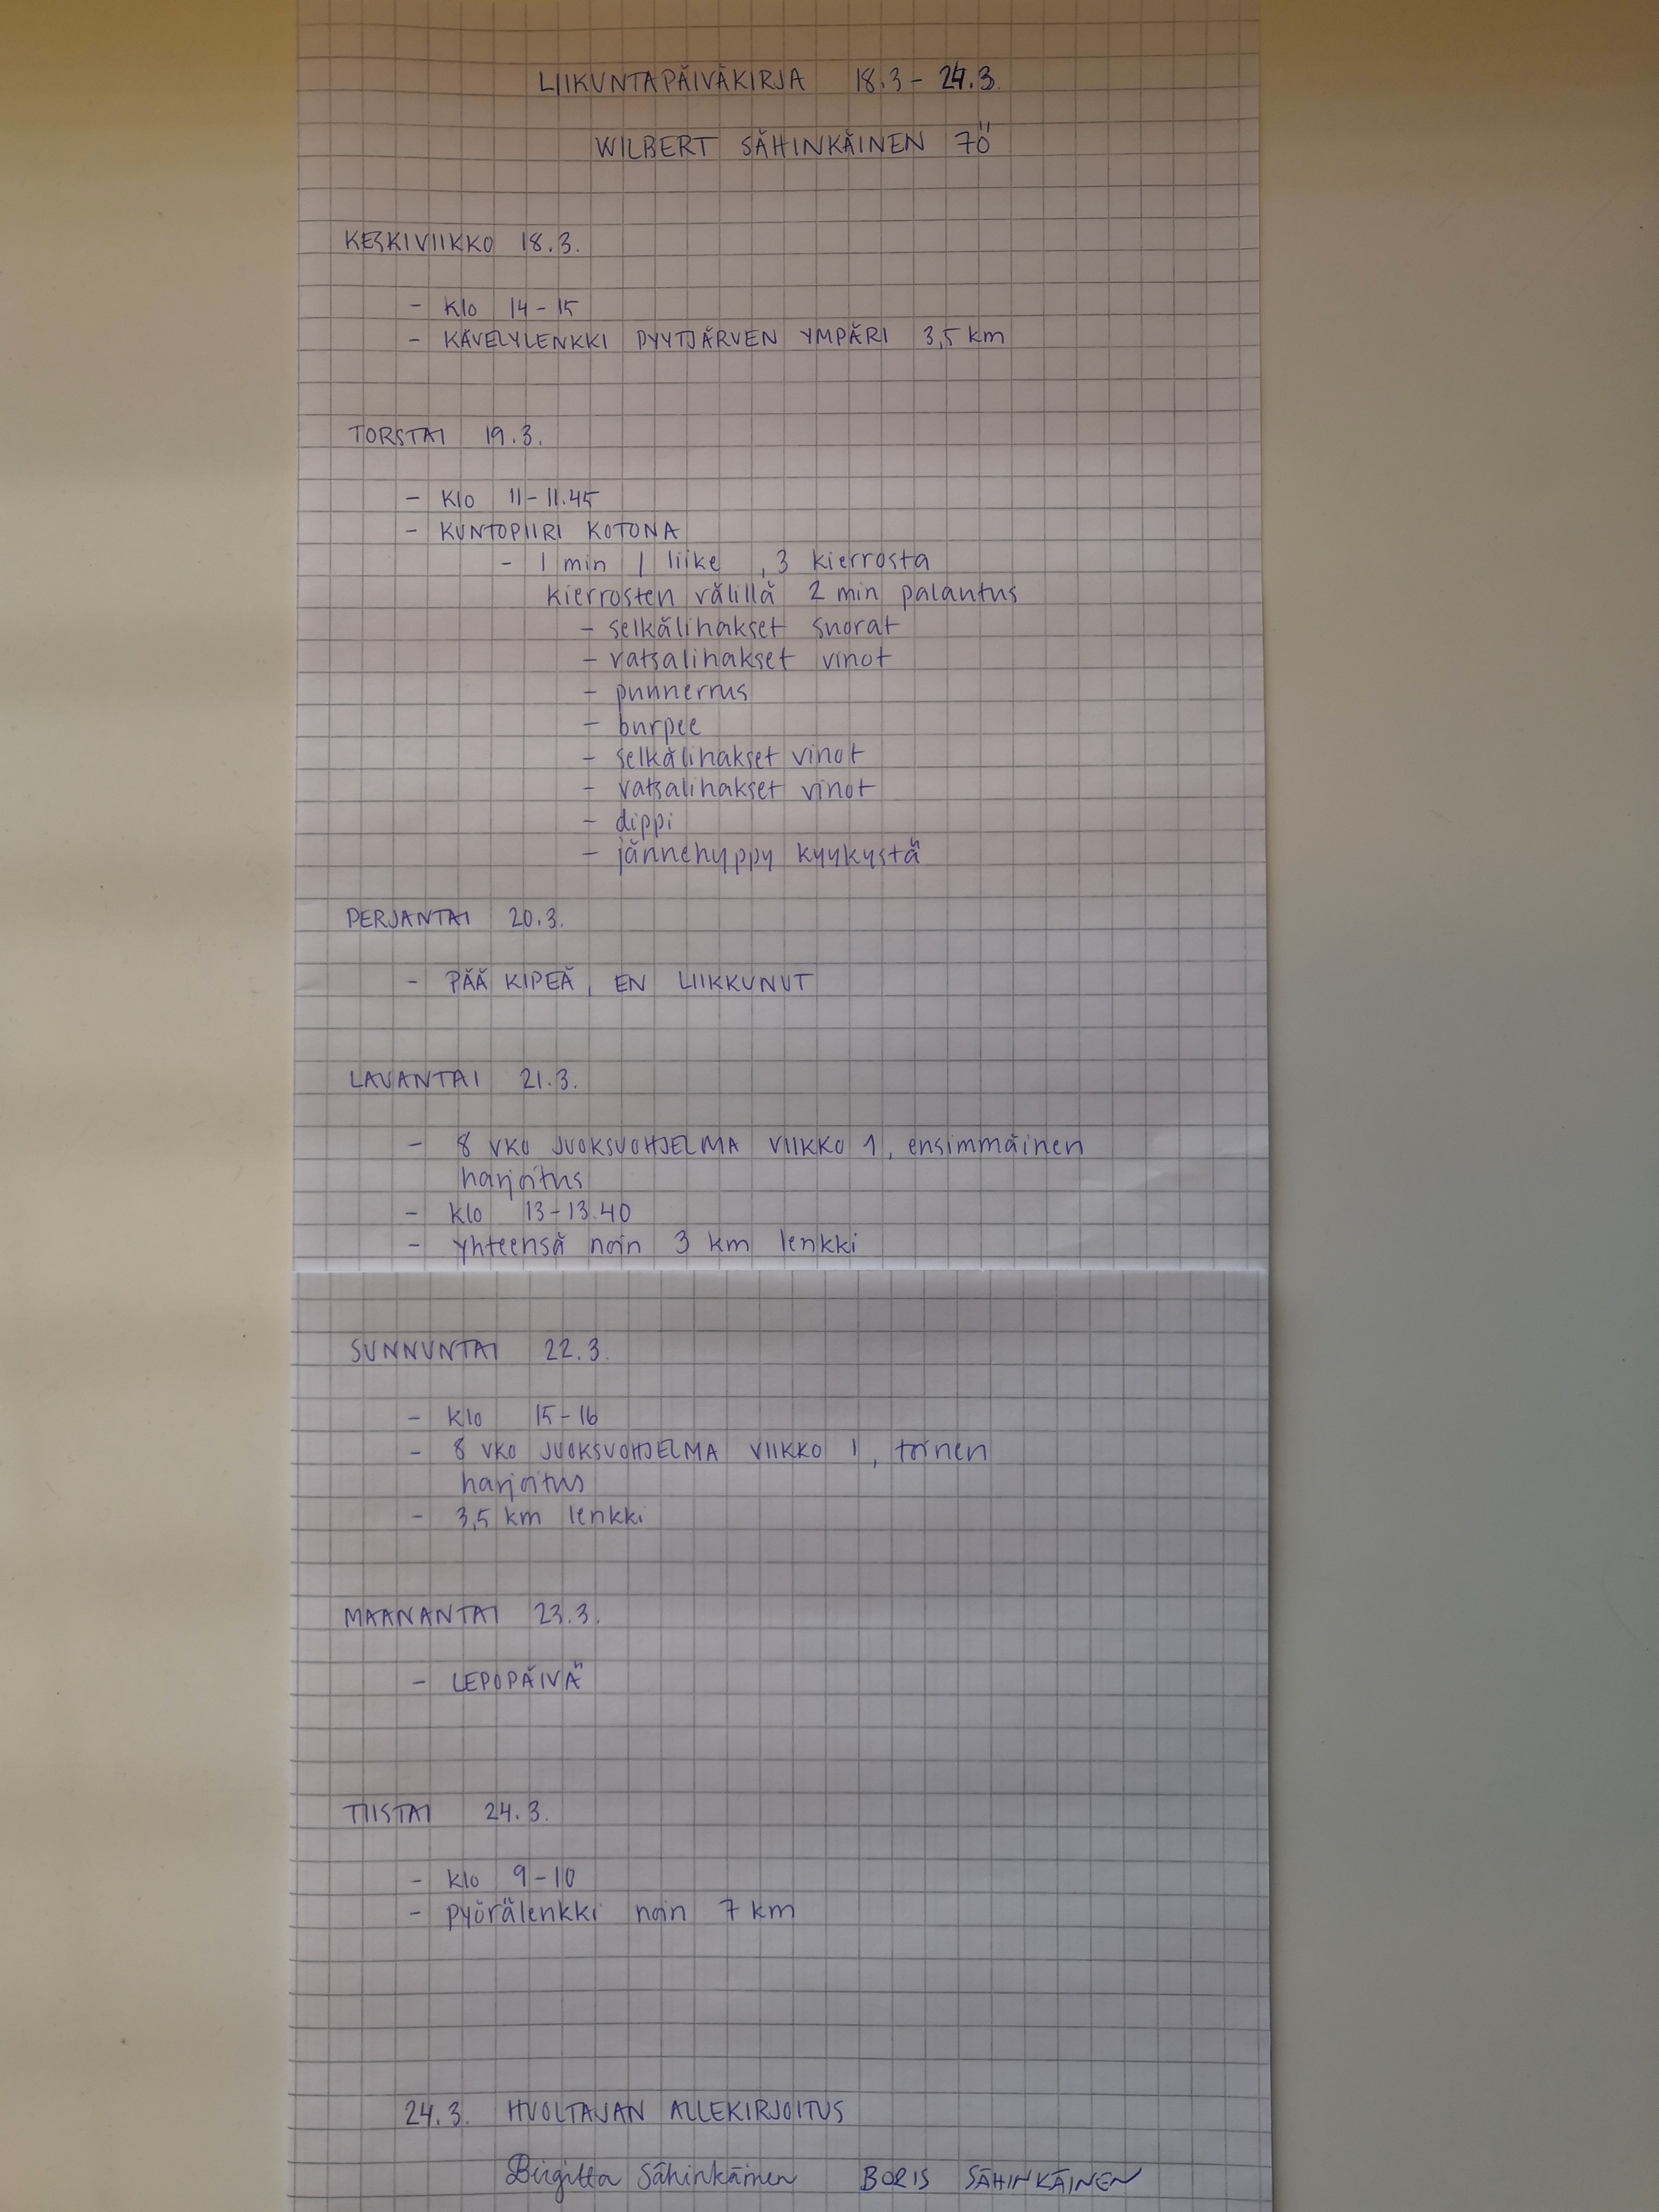 LIIKUNTAPÄIVÄKIRJA 18.3 - 24.3.
WILBERT SÄHINKÄINEN 7Ö
KESKIVIIKKO 18.3.
- Klo 14-15
- KÄVELYLENKKI PYYTJÄRVEN YMPÄRI 3,5 km
TORSTAI 19.3.
- Klo 11-11.45
- KUNTOPIIRI KOTONA
- 1 min / liike , 3 kierrosta
kierrosten välillä 2 min palautus
- selkälihakset suorat
- vatsalihakset vinot
- punnerrus
- burpee
- selkälihakset vinot
- vatsalihakset vinot
- dippi
- jännehyppy kyykystä
PERJANTAI 20.3.
- PÄÄ KIPEÄ, EN LIIKKUNUT
LAUANTAI 21.3.
- 8 VKO JUOKSUOHJELMA VIIKKO 1, ensimmäinen
harjoitus
- klo 13-13.40
- yhteensä noin 3 km lenkki
SUNNUNTAI 22.3.
- klo 15-16
- 8 VKO JUOKSUOHJELMA VIIKKO 1, toinen
harjoitus
- 3,5 km lenkki
MAANANTAI 23.3.
- LEPOPÄIVÄ
TIISTAI 24.3.
- klo 9-10
- pyörälenkki noin 7 km
24.3. HUOLTAJAN ALLEKIRJOITUS
Birgitta Sähinkäinen BORIS SÄHINKÄINEN